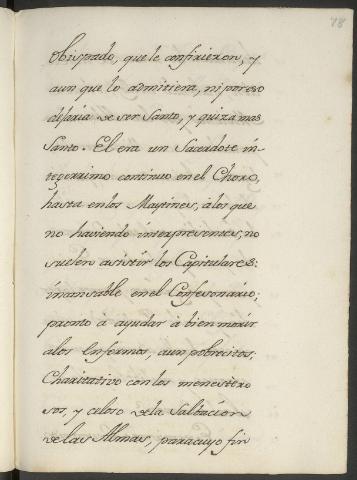 78
Obispado, que le confirieron, y
aun que lo admitiera, ni por eso
dejaria de ser Santo, y quizá mas
Santo. El era un Sacerdote in-
tegerrimo continuo en el Choro,
hasta en los Maytines, á los que
no haviendo interpresentes, no
suelen asistir los Capitulares:
incansable en el Confesonario;
pronto á ayudar á bien morir
alos Enfermos, aun pobrecitos:
Charitativo con los menestero
sos, y celoso de la Salbacion
de las Almas, para cuyo fin